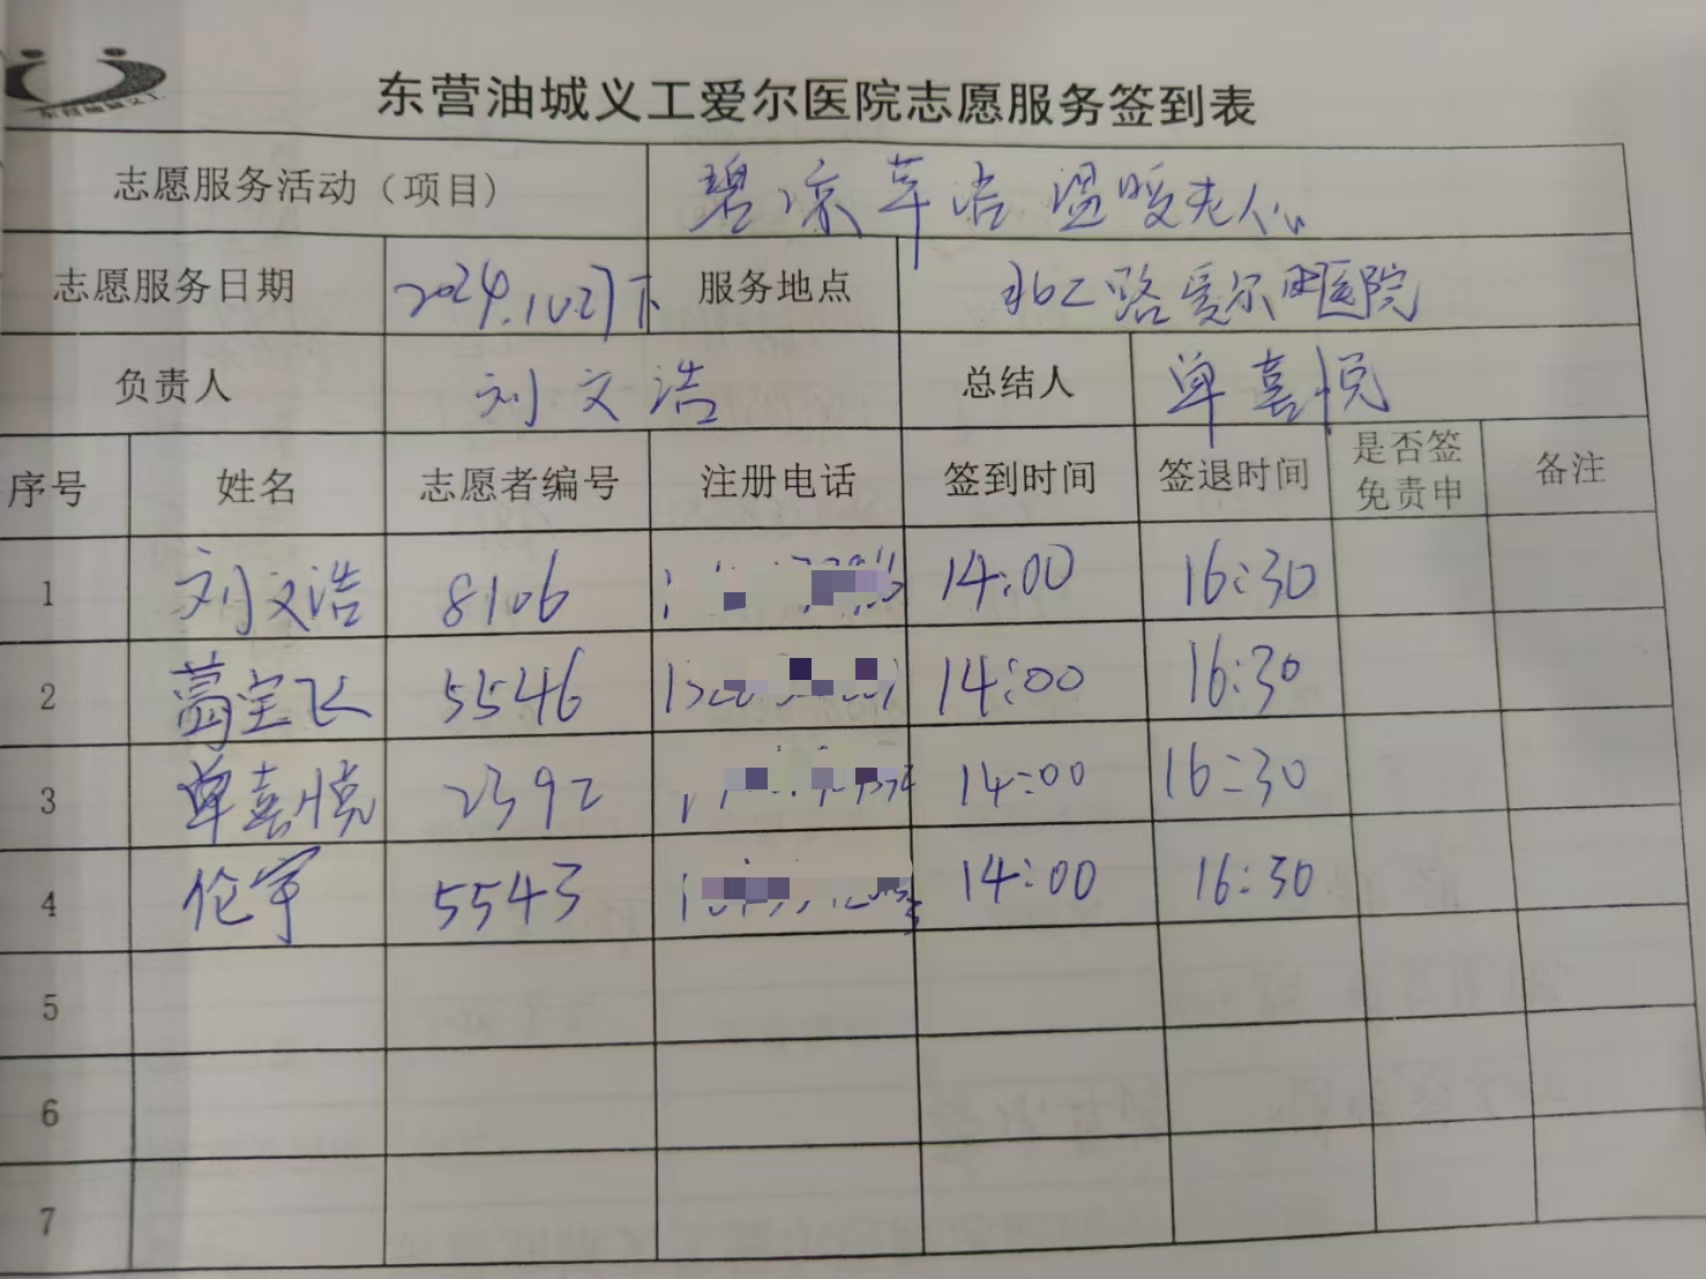 东营油城义工
东营油城义工爱尔医院志愿服务签到表
志愿服务活动（项目） 碧凉草洁 温暖老人心
志愿服务日期 2024.10.27下 服务地点 北二路爱尔眼医院
负责人 刘文浩 总结人 单喜悦
序号 姓名 志愿者编号 注册电话 签到时间 签退时间 是否签免责申 备注
1 刘文浩 8106 14:00 16:30
2 葛宝飞 5546 14:00 16:30
3 单喜悦 2392 14:00 16:30
4 伦宇 5543 14:00 16:30
5
6
7